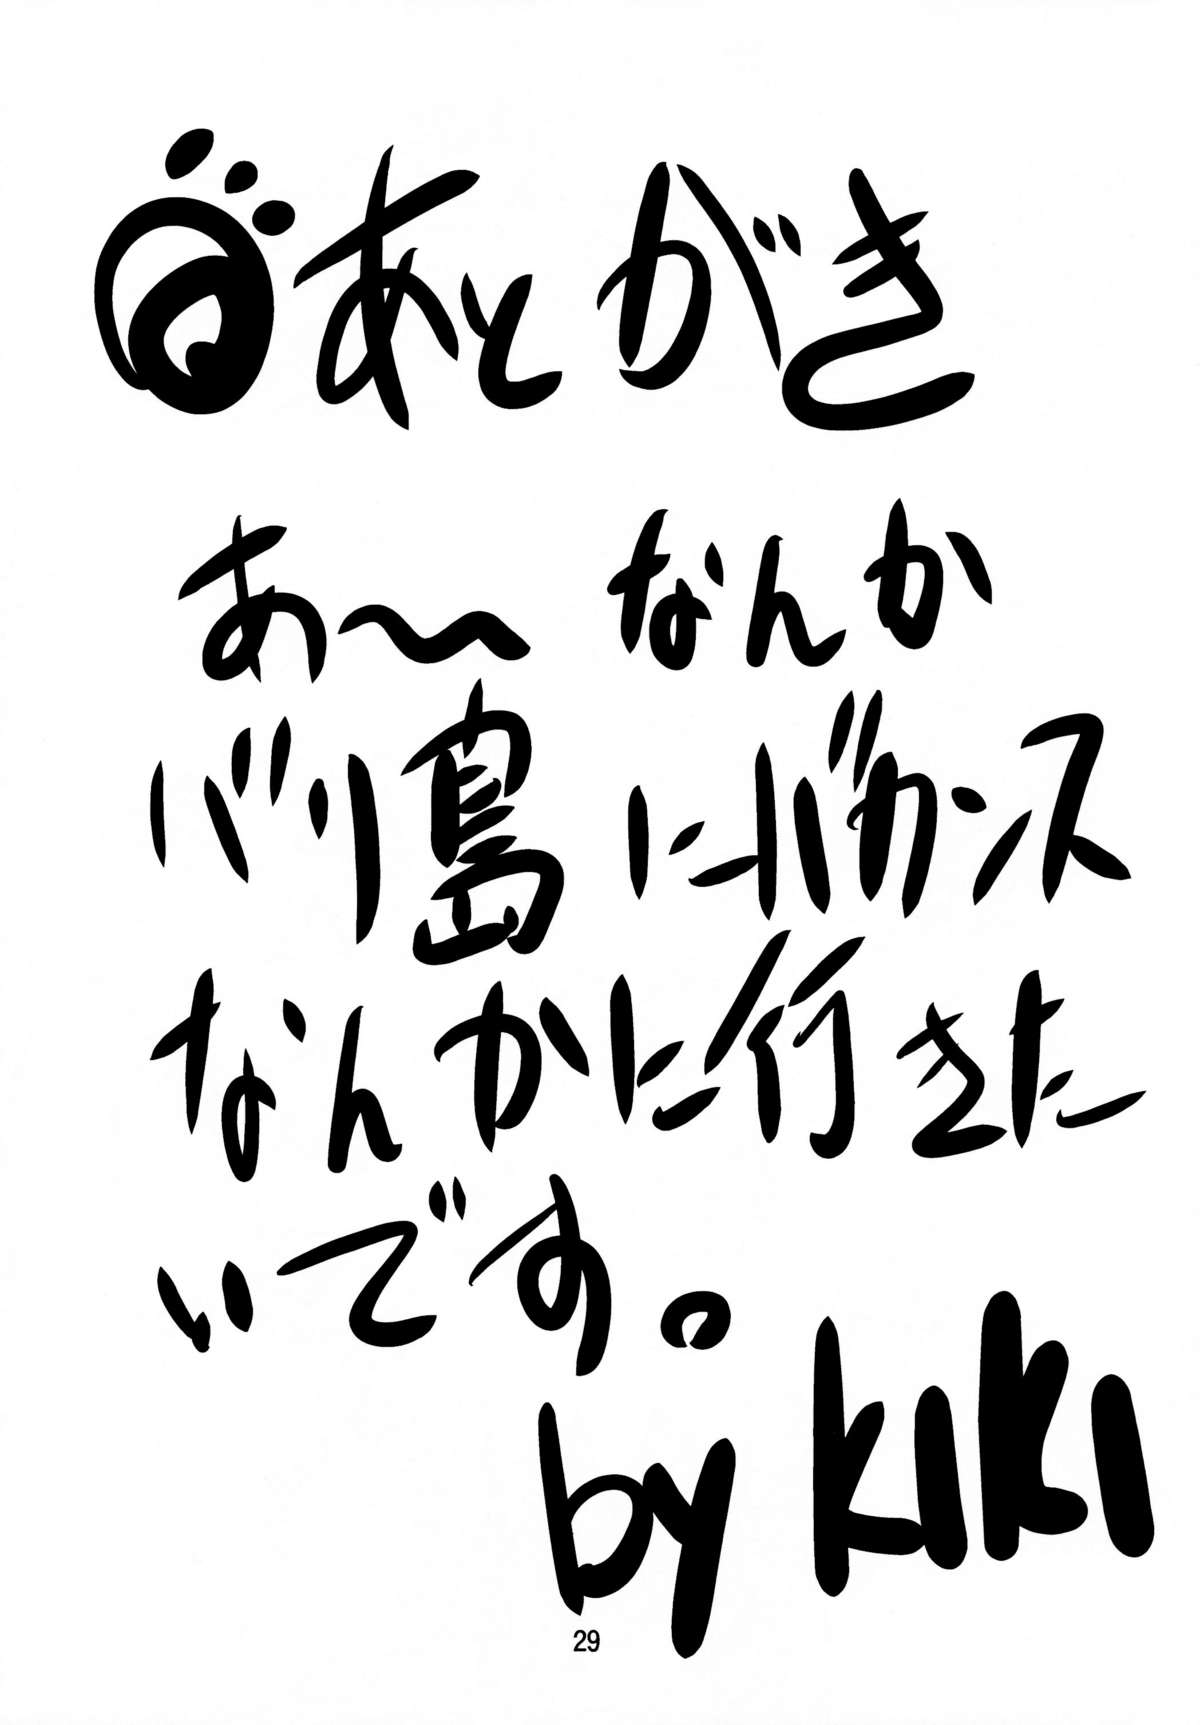 あとがき
あ〜なんか
バリ島にバカンス
なんかに行きた
いです。
by KIKI
29